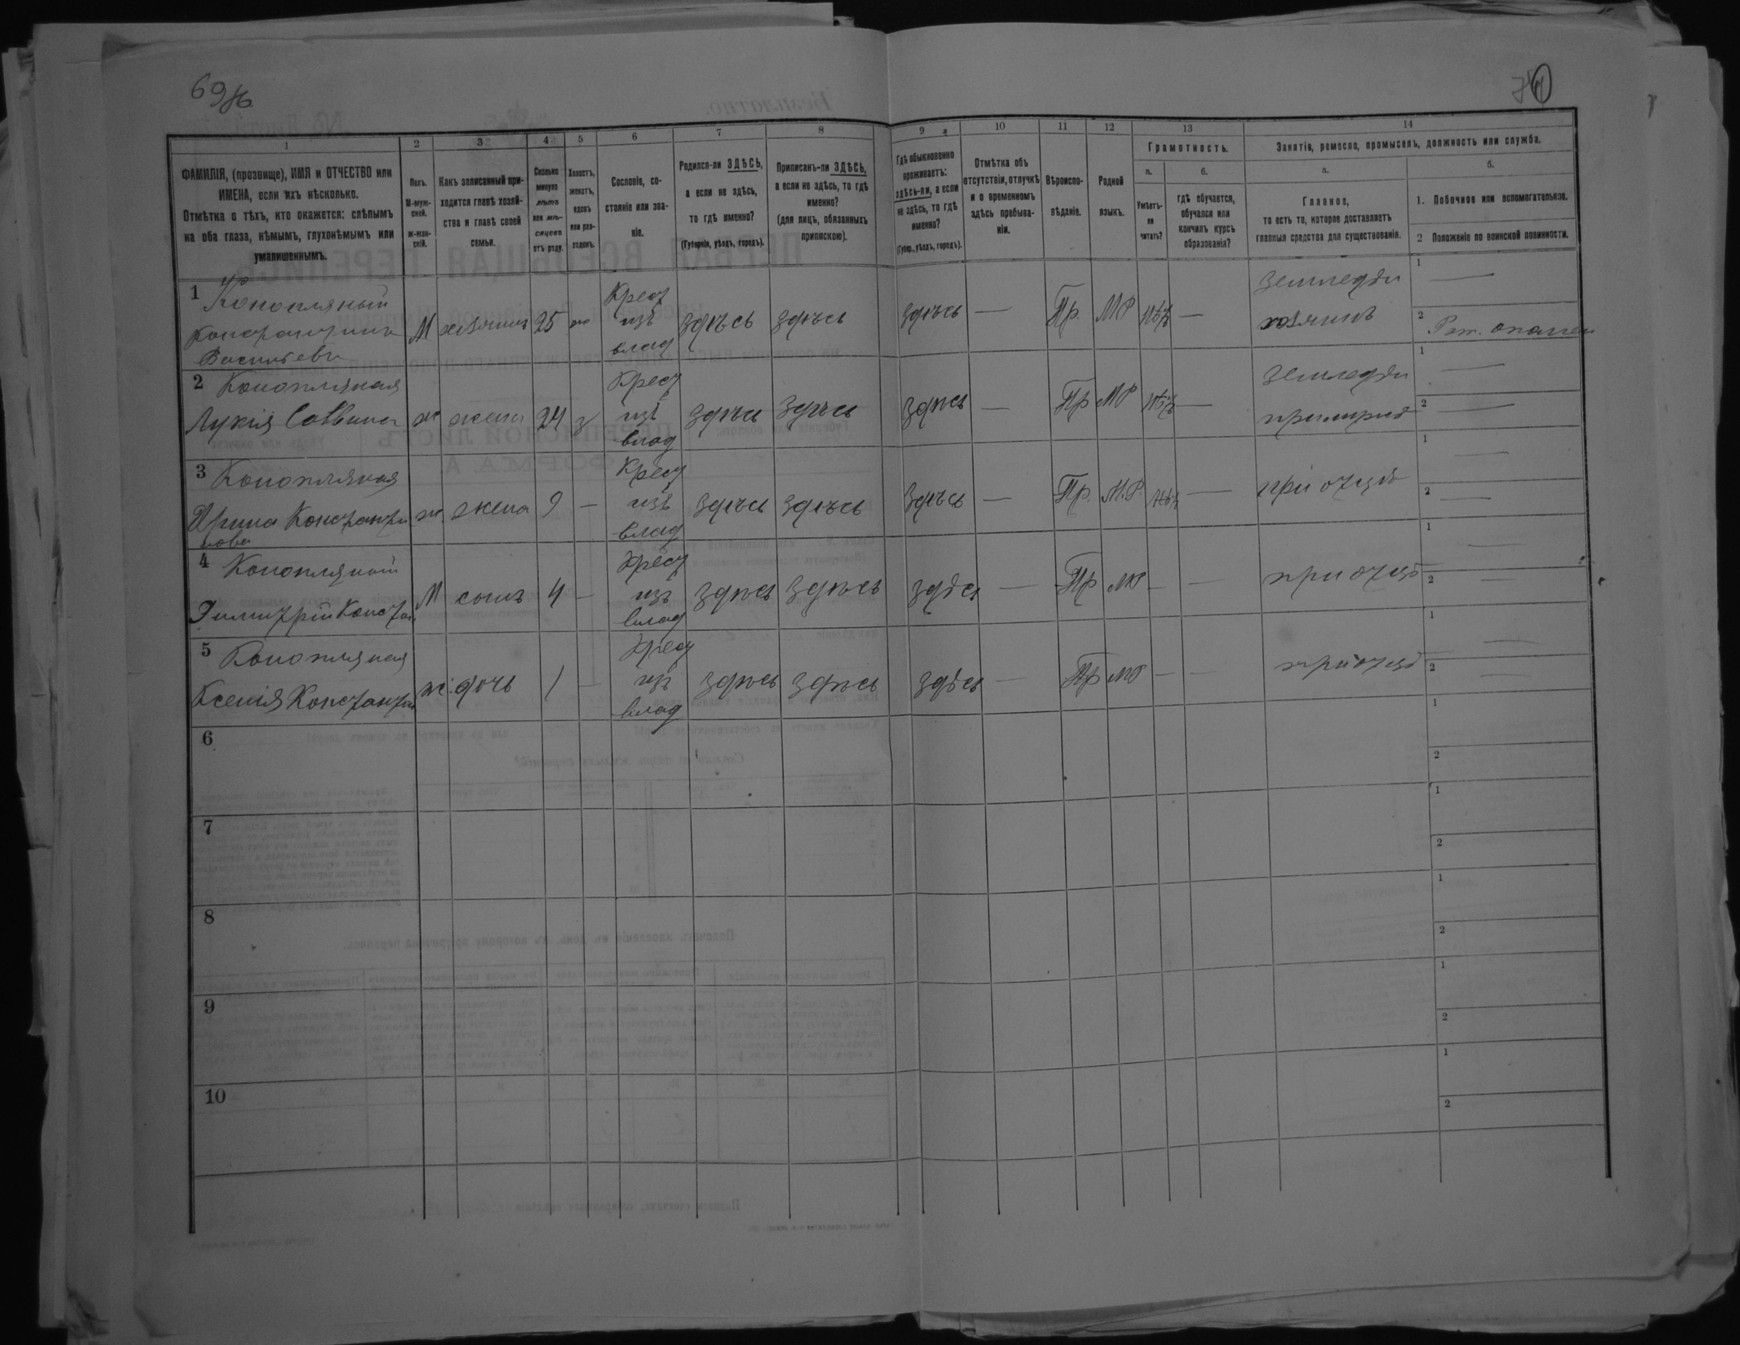 69
1
2
3
4
5
6
7
8
9
10
11
12
13
14
ФАМИЛІЯ, (прозвище), ИМЯ и ОТЧЕСТВО или
ИМЕНА, если ихъ нѣсколько.
Отмѣтка о тѣхъ, кто окажется: слѣпымъ
на оба глаза, нѣмымъ, глухонѣмымъ или
умалишеннымъ.
Полъ.
М-муж-
ской.
Ж-жен-
скій.
Какъ записанный при-
ходится главѣ хозяй-
ства и главѣ своей
семьи.
Сколько
минуло
лѣтъ
или мѣ-
сяцевъ
отъ роду.
Холостъ,
женатъ,
вдовъ
или раз-
веденъ.
Сословіе, со-
стояніе или зва-
ніе.
Родился-ли ЗДѢСЬ,
а если не здѣсь,
то гдѣ именно?
(Губернія, уѣздъ, городъ).
Приписанъ-ли ЗДѢСЬ,
а если не здѣсь, то гдѣ
именно?
(для лицъ, обязанныхъ
припискою).
Гдѣ обыкновенно
проживаетъ:
здѣсь-ли, а если
не здѣсь, то гдѣ
именно?
(Губер., уѣздъ, городъ).
Отмѣтка объ
отсутствіи, отлучкѣ
и о временномъ
здѣсь пребыва-
ніи.
Вѣроиспо-
вѣданіе.
Родной
языкъ.
Грамотность.
а.
Умѣетъ-
ли
читать?
б.
гдѣ обучается,
обучался или
кончилъ курсъ
образованія?
Занятія, ремесло, промыселъ, должность или служба.
а.
Главное,
то есть то, которое доставляетъ
главныя средства для существованія.
б.
1. Побочное или вспомогательное.
2 Положеніе по воинской повинности.
1 Конопляный
Васильевъ
М хозяинъ 25 ж
Крест
изъ
влад
здѣсь здѣсь здѣсь — Пр. МР нѣт —
Земледѣл
хозяинъ
1 —
2
2 Конопляная
Лукія Саввина
ж жена 24 з
Крест
изъ
влад
здѣсь здѣсь здѣсь — Пр МР нѣт —
Земледѣл
1 —
2 —
3 Конопляная
Ирина Константи
нова
ж. 9 —
Крест
изъ
влад
здѣсь здѣсь здѣсь — Пр. М.Р нѣт —
при отцѣ
1 —
2 —
4 Конопляный
Димитрій Констан
М сынъ 4 —
Крест
изъ
влад
здѣсь здѣсь здѣсь — Пр МР — —
при отцѣ
1 —
2 —
5 Конопляная
Ксенія Константин
ж. дочь 1 —
Крест
изъ
влад
здѣсь здѣсь здѣсь — Пр МР — —
при отцѣ
1 —
2 —
6
1
2
7
1
2
8
1
2
9
1
2
10
1
2